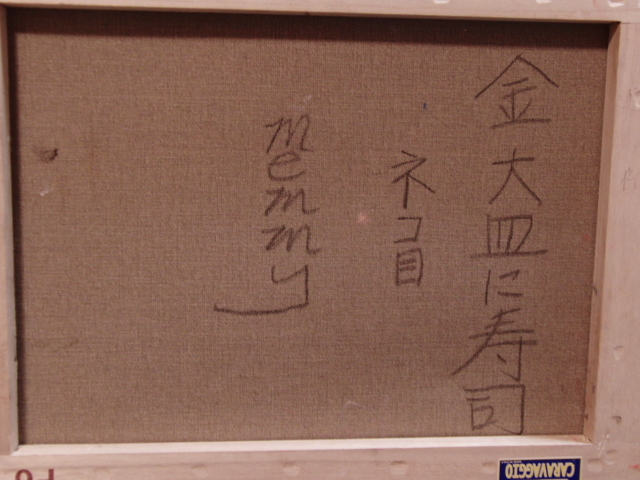 金大皿に寿司
ネコ目
memmy
CARAVAGGIO